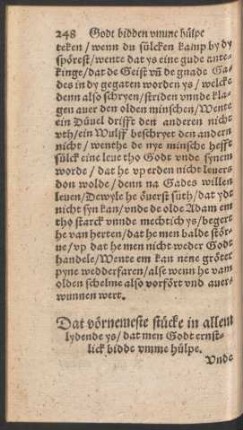 248 Godt bidden vmme hülpe
teken / wenn du sülcken kamp by dy
spörest / wente dat ys eine gude ante-
kinge / dat de Geist vñ de gnade Ga-
des in dy gegaten worden ys / welcke
denn also schryen / striden vnde kla-
gen auer den olden minschen / Wente
ein Düuel drifft den anderen nicht
vth / ein Wulff beschryet den andern
nicht / wenthe de nye minsche hefft
sülck eine leue tho Godt vnde synem
worde / dat he vp erden nicht leuers
don wolde / denn na Gades willen
leuen / Dewyle he öuerst süth / dat yde
nicht syn kan / vnde de olde Adam em
tho starck vnnde mechtich ys / begert
he van herten / dat he men balde stör-
ue / vp dat he men nicht weder Godt
handele / Wente em kan nene gröter
pyne wedderfaren / alse wenn he vam
olden schelme also vorfört vnd auer-
wunnen wert.
Dat vörnemeste stücke in allem
lydende ys / dat men Godt ernst-
lick bidde vmme hülpe.
Vnde